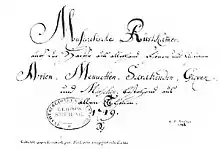 Musicalische Rüstkammer
auff der Harfe aus allerhand schönen und lustigen
Arien, Menuetten, Sarabanden, Giguen
und Märschen, bestehend aus
allen Thonen.
1719.